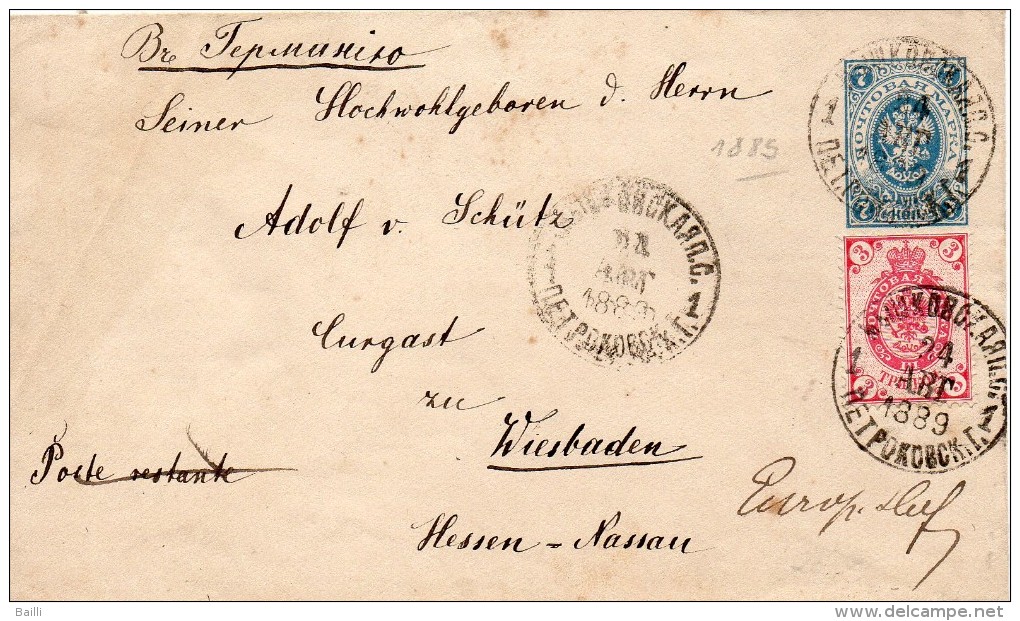 Въ Германiю
Seiner Hochwohlgeboren d. Herrn
Adolf v. Schütz
Curgast
zu
Wiesbaden
Hessen=Nassau
Poste restante
Europ. Hof
1889
7
ПОЧТОВАЯ МАРКА
7
3 3
ПОЧТОВАЯ
3 3
24
АВГ
1889
ПЕТРОКОВСК.Г.
1 1
24
АВГ
1889
ПЕТРОКОВСК.Г.
1
Bailli
delcampe.net